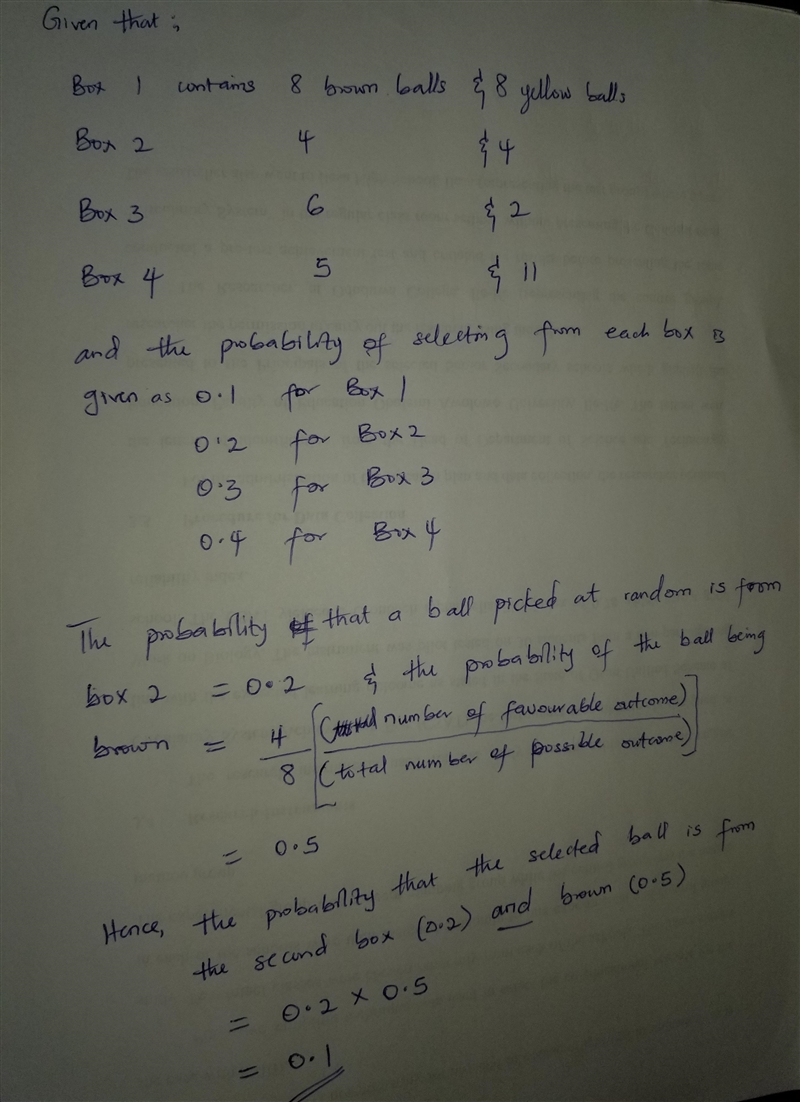 Given that;
Box 1 contains 8 brown balls & 8 yellow balls
Box 2 4 & 4
Box 3 6 & 2
Box 4 5 & 11
and the probability of selecting from each box is
given as 0.1 for Box 1
0.2 for Box 2
0.3 for Box 3
0.4 for Box 4
The probability that a ball picked at random is from
box 2 = 0.2 & the probability of the ball being
brown = 4/8 [(number of favourable outcome)/(total number of possible outcome)]
= 0.5
Hence, the probability that the selected ball is from
the second box (0.2) and brown (0.5)
= 0.2 × 0.5
= 0.1